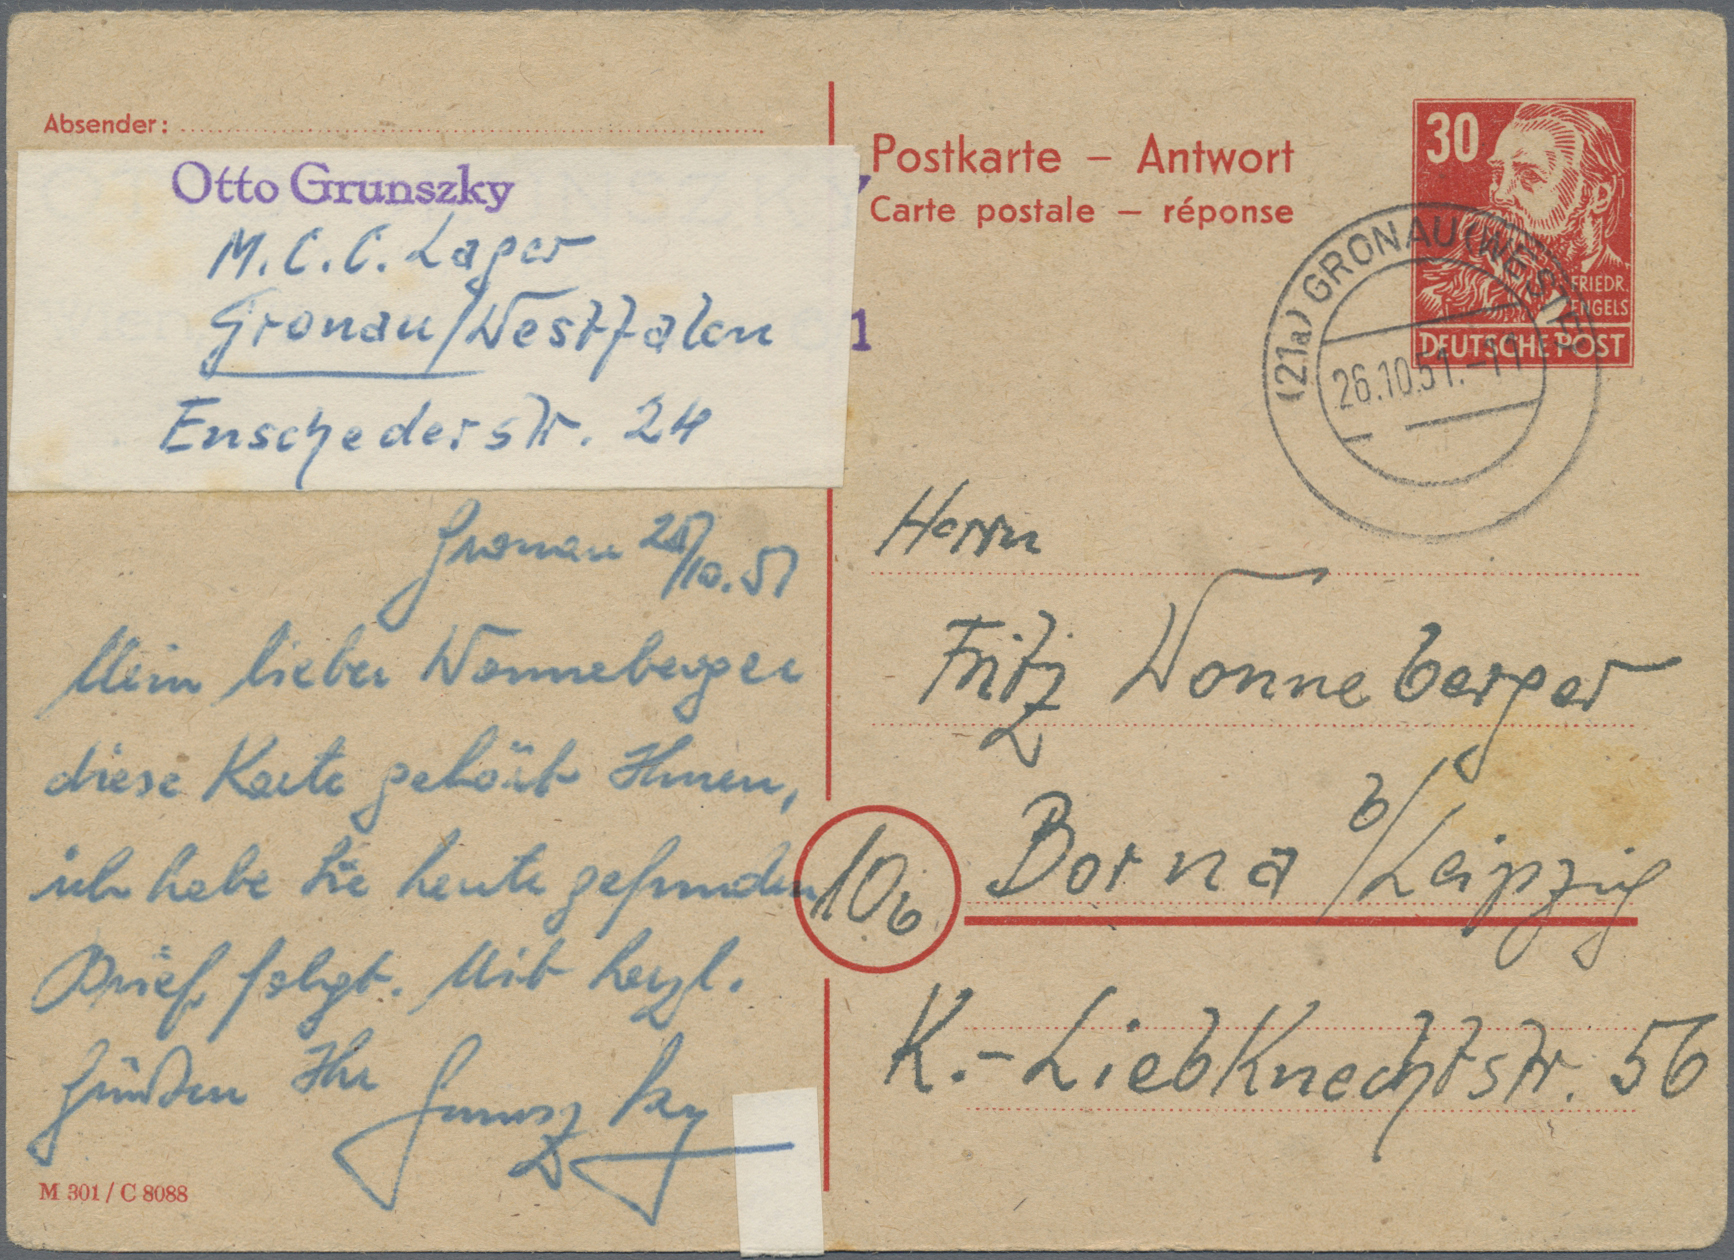 Absender:
Otto Grunszky
M.C.C. Lager
Gronau/Westfalen
Enschederstr. 24
Gronau 25/10.51
Mein lieber Wonneberger
diese Karte gehört Ihnen,
ich habe sie heute gefunden
Brief folgt. Mit herzl.
Grüßen Ihr Grunszky
M 301 / C 8088
Postkarte – Antwort
Carte postale – réponse
1
30
FRIEDR.
ENGELS
DEUTSCHE POST
(21a) GRONAU (WESTF)
26.10.51.-11
Herrn
Fritz Wonneberger
Borna b/Leipzig
10b
K.-Liebknechtstr. 56